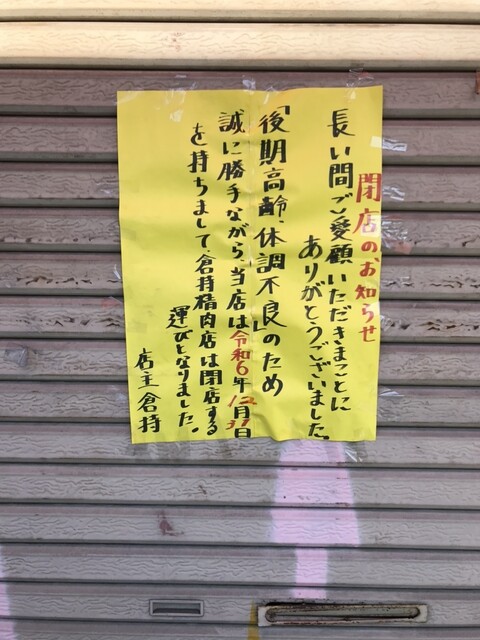 閉店のお知らせ
長い間ご愛顧いただきまことに
ありがとうございました。
「後期高齢・体調不良」のため
誠に勝手ながら、当店は令和6年12月31日
を持ちまして、倉持精肉店は閉店する
運びとなりました。
店主 倉持